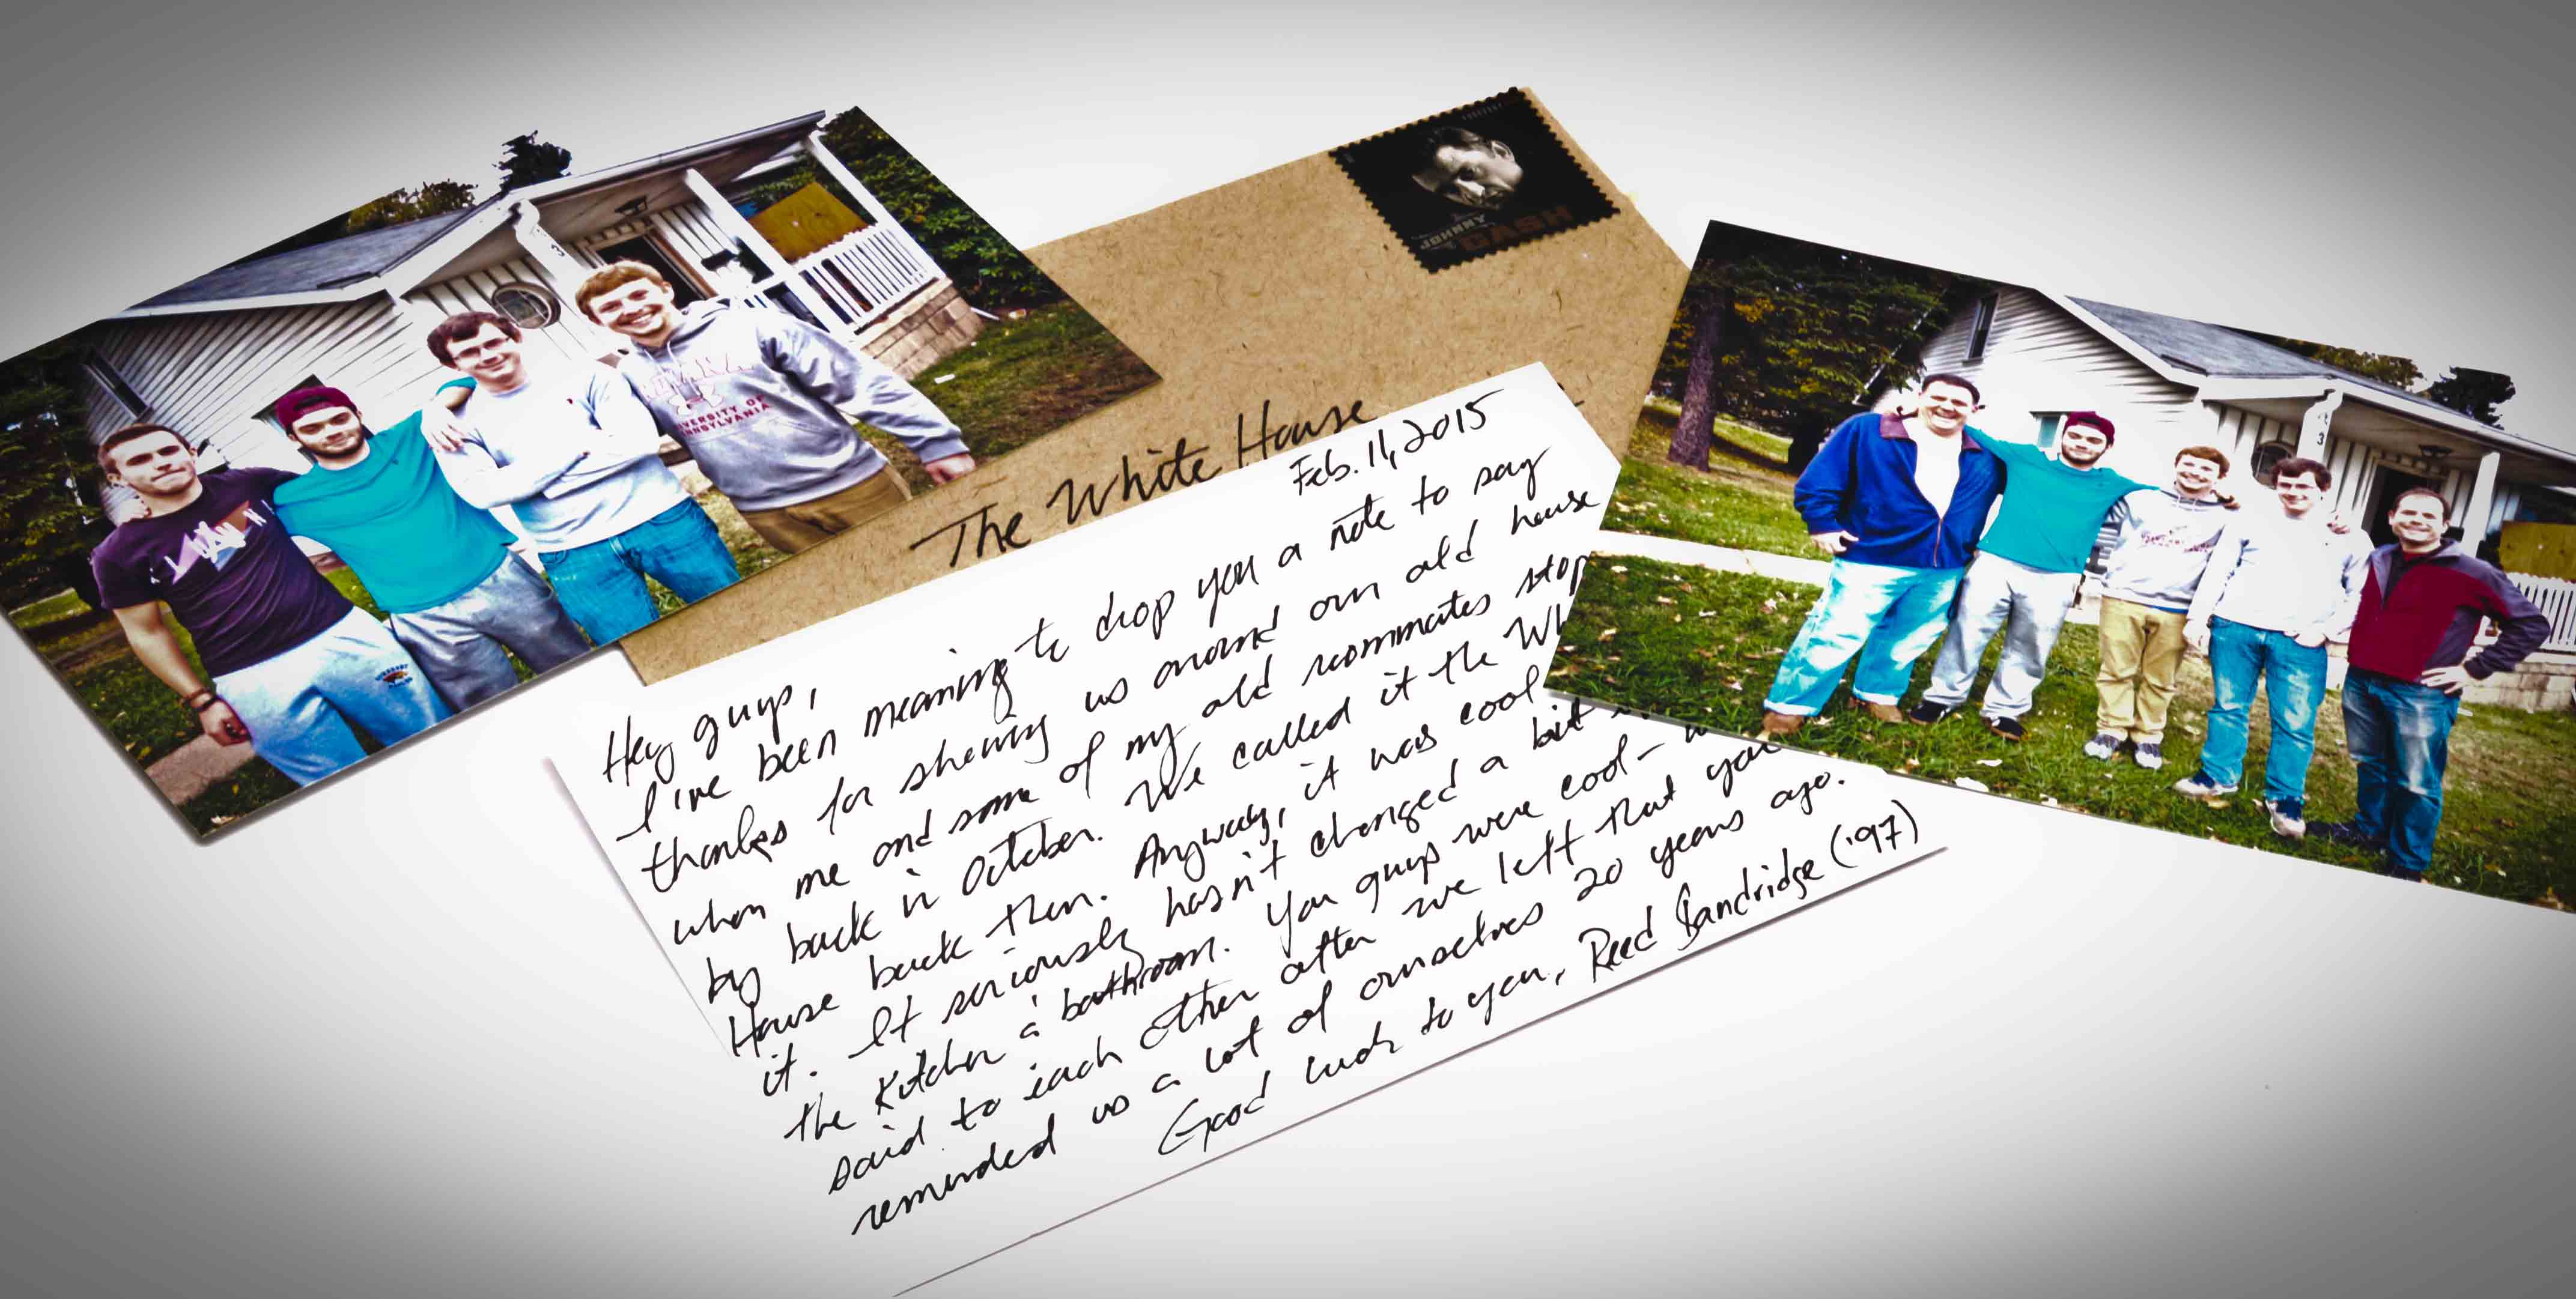 JOHNNY
CASH
The White House
Feb. 11, 2015
Hey guys,
I've been meaning to drop you a note to say
thanks for showing us around our old house
when me and some of my old roommates stop
by back in October. We called it the Wh
House back then. Anyway, it was cool
it. It seriously hasn't changed a bit
the kitchen a bathroom. You guys were cool-
said to each other after we left that you
reminded us a lot of ourselves 20 years ago.
Good luck to you, Reed Sandridge ('97)
INDIANA
UNIVERSITY OF
PENNSYLVANIA
3
3